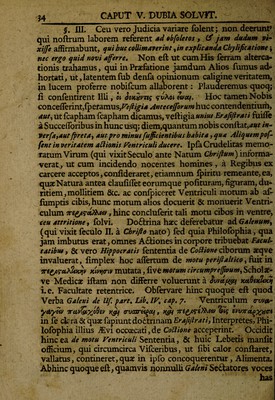 34 CAPUT V. DUBIA SOLVIT.
§. III. Ceu vero Judicia variare solent; non deerunt
qui nostrum laborem referent ad obsoletos, & jam dudum vi-
xisse affirmabunt, qui huc collimaverint, in explicanda Chylificatione;
nec ergo quid novi afferre. Non est ut cum His serram alterca-
tionis trahamus, qui in Præfatione jamdum Alios sumus ad-
hortati, ut, latentem sub densa opinionum caligine veritatem,
in lucem proferre nobiscum allaborent: Plauderemus quoq;
si consentirent Illi, Hoc tamen Nobis
concesserint, speramus, Vestigia Antecessorum huc contendentium,
aut, ut scapham scapham dicamus, vestigia unius Erasistrati fuisse
à Successoribus in hunc usq; diem, quantum nobis constat, aut in-
versa, aut spreta, aut pro minus sufficientibus habita, quæ Aliquem pos-
sent in veritatem actionis Ventriculi ducere. Ipsa Crudelitas memo-
ratum Virum (qui vixit Seculo ante Natum Christum) informa-
verat, ut cum incidendo nocentes homines, à Regibus ex
carcere acceptos, consideraret, etiamnum spiritu remeante, ea,
quæ Natura antea clausisset eorumque posituram, figuram, du-
ritiem, mollitiem &c. ac conspiceret Ventriculi motum ab as-
sumptis cibis, hunc motum alios docuerit & monuerit Ventri-
culum hinc concluserit tali motu cibos in ventre,
ceu attritione, solvi. Doctrina hæc deferebatur ad Galenum,
(qui vixit seculo II. à Christo nato) sed quia Philosophia, qua
jam imbutus erat, omnes Actiones in corpore tribuebat Facul-
tatibus, & vero Hippocratis sententia de Coctione ciborum æque
invaluerat, simplex hoc assertum de motu peristaltico, fuit in
mutata, sive motum circumpressivum, Scholæ-
ve Medicæ istam non differre voluerunt à
i. e. Facultate retentrice. Observare hinc quoque est quod
Verba Galeni de Us. part. Lib. IV, cap. 7. Ventriculum
in se clara & quæ sapiunt doctrinam Erasistrati, Interpretes, Phi-
losophia illius Ævi occæcati, de Coctione acceperint. Occidit
hinc ea de motu Ventriculi Sententia, & huic Lebetis mansit
officium, qui circumcirca Visceribus, ut sibi calor constaret,
vallatus, contineret, quæ in ipso concoquerentur, Alimenta.
Abhinc quoque est, quamvis nonnulli Galeni Sectatores voces
has